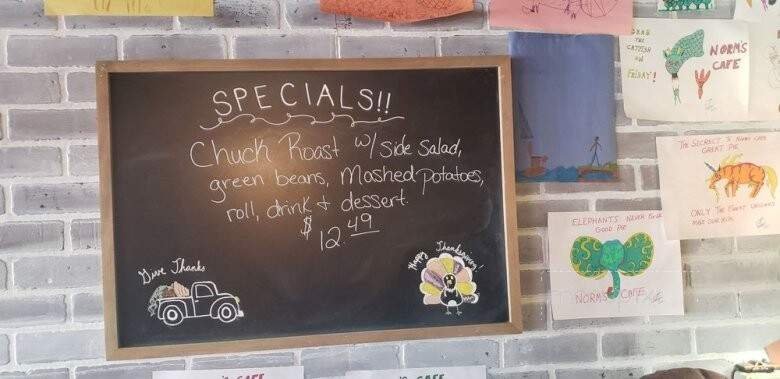 SPECIALS!!
Chuck Roast w/ side salad,
green beans, Mashed potatoes,
roll, drink & dessert.
$12.49
Give Thanks
Happy Thanksgiving!
CATFISH
ON
FRIDAY!
NORM'S
CAFE
THE SECRECT
GREAT PIE
ONLY THE FINEST UNICORNS
ELEPHANTS NEVER
GOOD PIE
NORMS CAFE
CAFE
CAFE